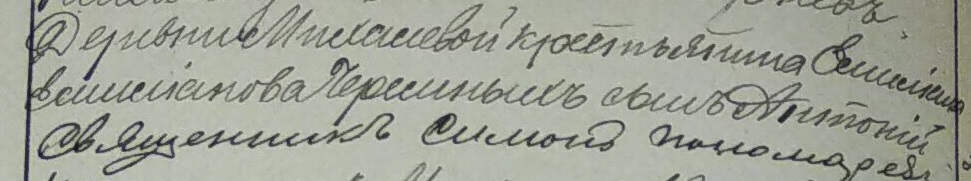 Деревни Михалевой крестьянина Емилiана
Емилiанова Черемныхъ сынъ Антонiй
Священникъ Симонъ Пономаревъ